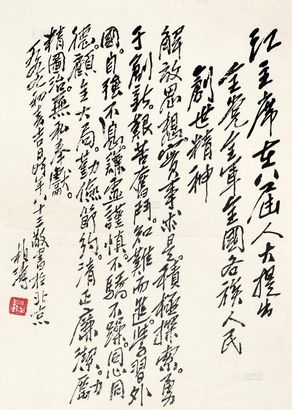 江主席在八届人大提出
全党全军全国各族人民
創世精神
解放思想實事求是。積極探索勇
于創新。艱苦奮鬥。知難而進。學習外
國。自強不息。謙虛謹慎。不驕不躁。同心同
德。顧全大局。勤儉節約。清正廉潔。勵
精圖治。無私奉獻。
八十二敬書於北京